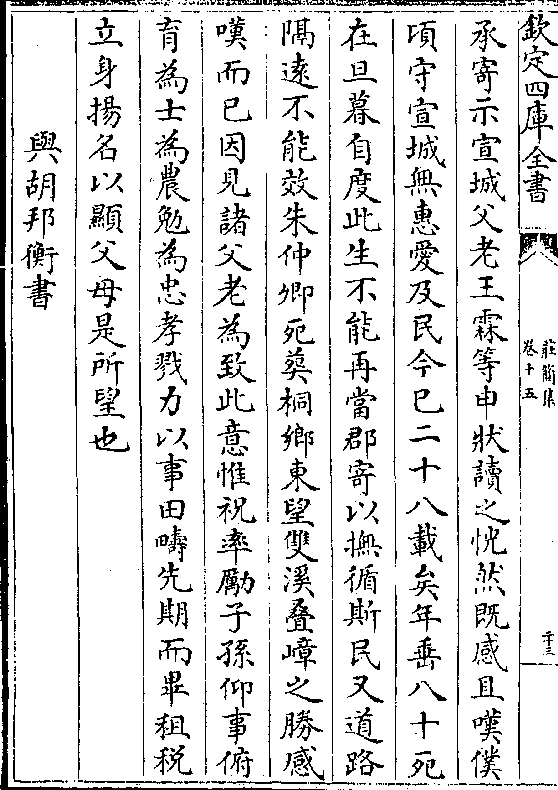 欽定四庫全書
莊簡集
卷十五
二十三
承寄示宣城父老王霖等申狀讀之怳然既感且嘆僕
頃守宣城無惠愛及民今已二十八載矣年垂八十死
在旦暮自度此生不能再當郡寄以撫循斯民又道路
隔遠不能效朱仲卿死葬桐鄉東望雙溪叠嶂之勝感
嘆而已因見諸父老為致此意惟祝率勵子孫仰事俯
育為士為農勉為忠孝戮力以事田疇先期而畢租税
立身揚名以顯父母是所望也
與胡邦衡書